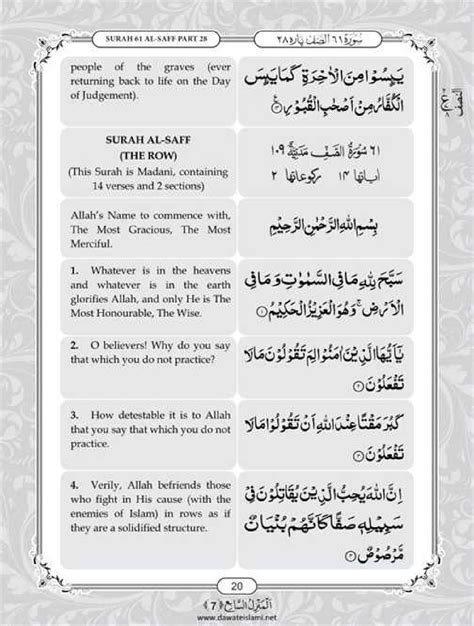 SURAH 61 AL-SAFF PART 28
سورة ٦١ الصف پاره ٢٨
people of the graves (ever
returning back to life on the Day
of Judgement).
يَىِٕسُوْا مِنَ الْاٰخِرَةِ كَمَا یَىِٕسَ
الْكُفَّارُ مِنْ اَصْحٰبِ الْقُبُوْرِ
SURAH AL-SAFF
(THE ROW)
(This Surah is Madani, containing
14 verses and 2 sections)
٦١ سُوْرَةُ الصَّفِّ مَدَنِيَّةٌ ١٠٩
اٰیاتها ١٤ رکوعاتها ٢
Allah's Name to commence with,
The Most Gracious, The Most
Merciful.
بِسْمِ اللّٰهِ الرَّحْمٰنِ الرَّحِیْمِ
1. Whatever is in the heavens
and whatever is in the earth
glorifies Allah, and only He is The
Most Honourable, The Wise.
سَبَّحَ لِلّٰهِ مَا فِی السَّمٰوٰتِ وَمَا فِی
الْاَرْضِ ۚ وَهُوَ الْعَزِیْزُ الْحَكِیْمُ ١
2. O believers! Why do you say
that which you do not practice?
یٰۤاَیُّهَا الَّذِیْنَ اٰمَنُوْا لِمَ تَقُوْلُوْنَ مَا لَا
تَفْعَلُوْنَ ٢
3. How detestable it is to Allah
that you say that which you do not
practice.
كَبُرَ مَقْتًا عِنْدَ اللّٰهِ اَنْ تَقُوْلُوْا مَا لَا
تَفْعَلُوْنَ ٣
4. Verily, Allah befriends those
who fight in His cause (with the
enemies of Islam) in rows as if
they are a solidified structure.
اِنَّ اللّٰهَ یُحِبُّ الَّذِیْنَ یُقَاتِلُوْنَ فِیْ
سَبِیْلِهٖ صَفًّا كَاَنَّهُمْ بُنْیَانٌ
مَّرْصُوْصٌ ٤
20
اَلْمَنْزِلُ السَّابِعُ ﴿7﴾
www.dawateislami.net